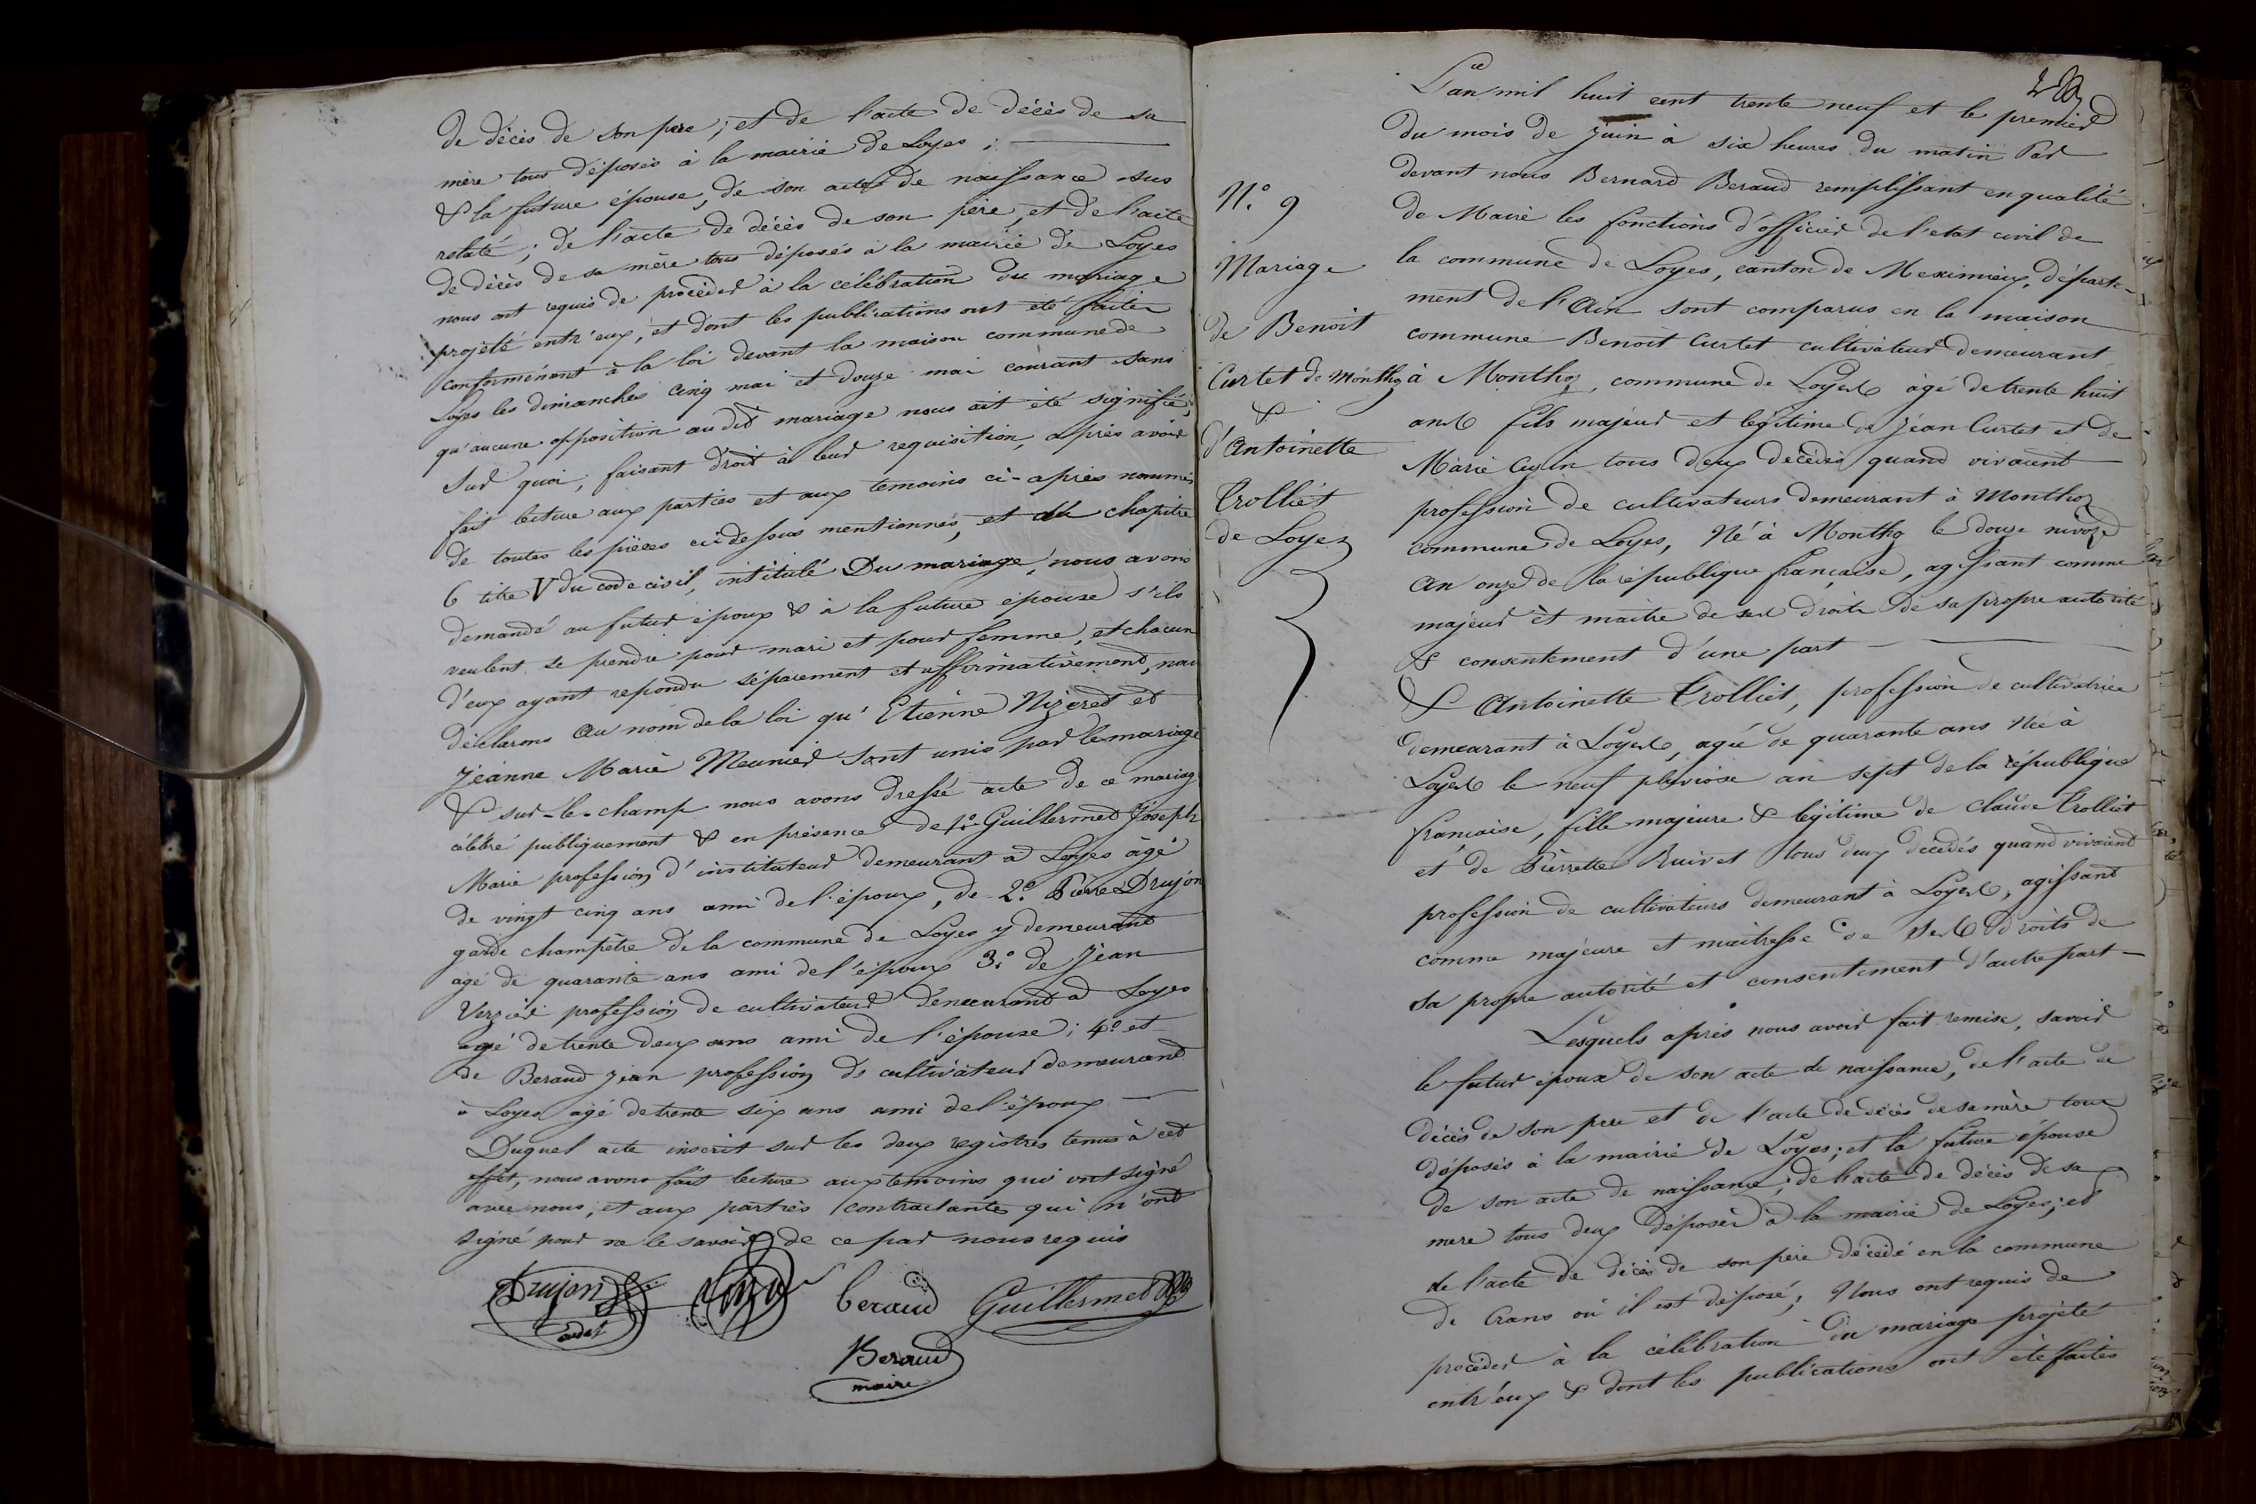 de décès de son pere ; et de l'acte de décès de sa
mère tous déposés à la mairie de Loyes ;
& la future épouse, de son acte de naissance sus
relaté ; de l'acte de décès de son père, et de l'acte
de décès de sa mère tous déposés à la mairie de Loyes
nous ont requis de procéder à la célébration du mariage
projété entr'eux, et dont les publications ont été faites
conformément à la loi devant la maison commune de
Loyes les dimanches cinq mai et douze mai courant sans
qu'aucune opposition audit mariage nous ait été signifiée ;
Sur quoi, faisant droit à leur requisition, après avoir
fait lecture aux parties et aux temoins ci-après nommés
de toutes les pièces ci dessus mentionnés, et du chapitre
6 titre V du code civil, intitulé Du mariage, nous avons
demandé au futur époux & à la future épouse s'ils
veulent se prendre pour mari et pour femme, et chacun
d'eux ayant repondu séparement et affirmativement, nous
déclarons au nom de la loi qu' Etienne Nizeret et
Jeanne Marie Meunier sont unis par le mariage
& sur-le-champ nous avons dressé acte de ce mariage
célébré publiquement & en présence de 1º Guillermet Joseph
Marie profession d'instituteur demeurant à Loyes âgé
de vingt cinq ans ami de l'époux, de 2º Pierre Drujon
garde champêtre de la commune de Loyes y demeurant
agé de quarante ans ami de l'époux 3º de Jean
Verzier profession de cultivateur demeurant à Loyes
agé de trente deux ans ami de l'épouse ; 4º et
de Beraud Jean profession de cultivateur demeurant
à Loyes agé de trente six ans ami de l'époux
Duquel acte inscrit sur les deux registres tenus à cet
effet, nous avons fait lecture aux temoins qui ont signé
avec nous, et aux parties contractantes qui n'ont
signé pour ne le savoir de ce par nous requis
Drujon
beraud
Guillermet
Beraud
maire
L'an mil huit cent trente neuf et le premier
du mois de juin à six heures du matin Par
devant nous Bernard Beraud remplissant en qualité
de Maire les fonctions d'officier de l'etat civil de
la commune de Loyes, canton de Meximieux, départe-
ment de l'Ain sont comparus en la maison
commune Benoit Curtet cultivateur demeurant
à Monthoz, commune de Loyes âgé de trente huit
ans fils majeur et légitime de Jean Curtet et de
Marie tous deux decédés quand vivaient
profession de cultivateurs demeurant à Monthoz
commune de Loyes, Né à Monthoz le douze nivoze
an onze de la république française, agissant comme
majeur et maitre de ses droits de sa propre autorité
& consentement d'une part
& Antoinette Trolliet, profession de cultivatrice
demeurant à Loyes, agée de quarante ans Née à
Loyes le neuf pluviose an sept de la république
française, fille majeure & légitime de Claude Trolliet
et de Pierrette Ruivet tous deux decédés quand vivaient
profession de cultivateurs demeurant à Loyes, agissant
comme majeure et maitresse de ses droits de
sa propre autorité et consentement d'autre part
Lesquels après nous avoir fait remise, savoir
le futur époux de son acte de naissance, de l'acte de
décès de son pere et de l'acte de décès de sa mère tous
déposés à la mairie de Loyes ; et la future épouse
de son acte de naissance, de l'acte de décès de sa
mere tous deux déposés à la mairie de Loyes ; et
de l'acte de décès de son père décédé en la commune
de Crans où il est déposé ; Nous ont requis de
procéder à la célébration du mariage projeté
entr'eux & dont les publications ont été faites
Nº 9
Mariage
de Benoit
Curtet de Monthoz
&
d'Antoinette
Trolliet
de Loyes